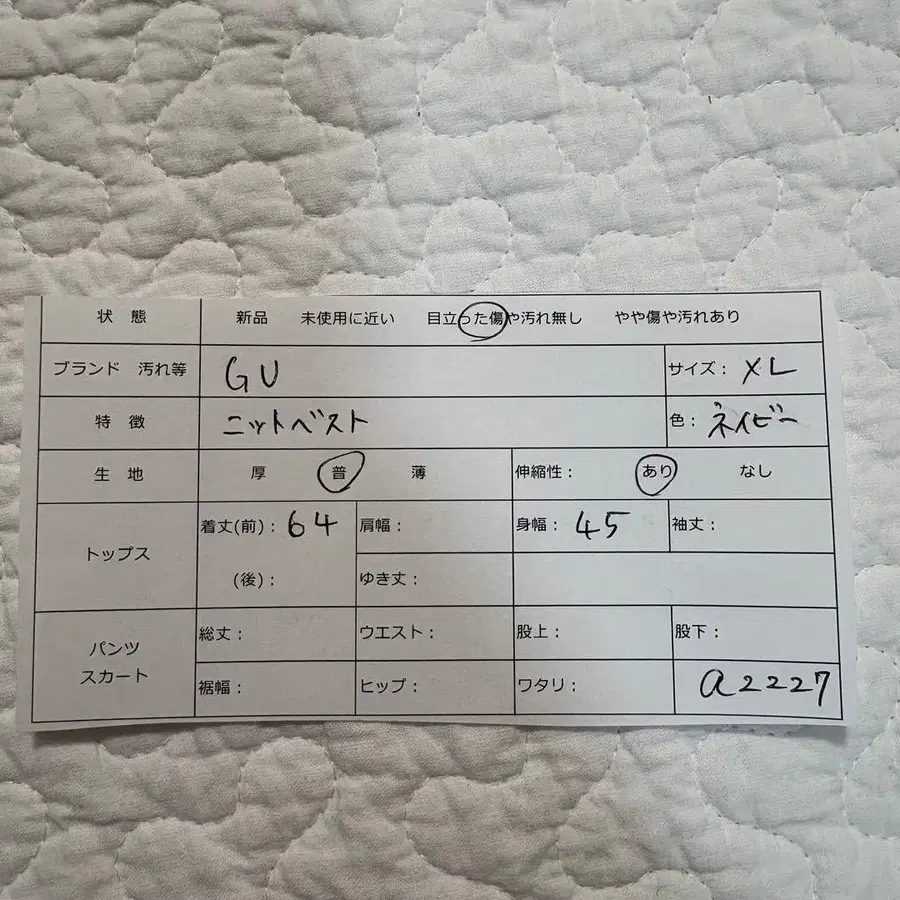 状 態 新品 未使用に近い 目立った傷や汚れ無し やや傷や汚れあり
ブランド 汚れ等 GU サイズ： XL
特 徴 ニットベスト 色： ネイビー
生 地 厚 普 薄 伸縮性： あり なし
トップス 着丈(前)： 64 肩幅： 身幅： 45 袖丈：
(後)： ゆき丈：
パンツ スカート 総丈： ウエスト： 股上： 股下：
裾幅： ヒップ： ワタリ： a2227